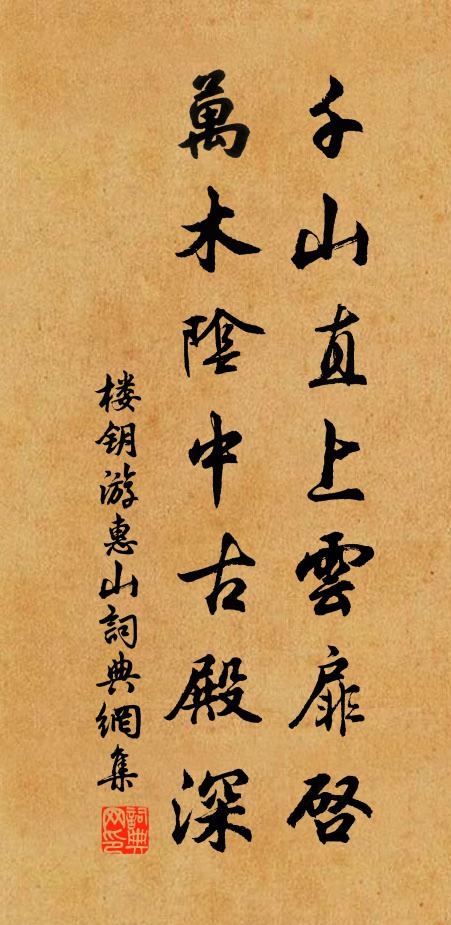 千山直上雲扉啓
萬木陰中古殿深
楼钥游惠山詞典網集
詞典网印